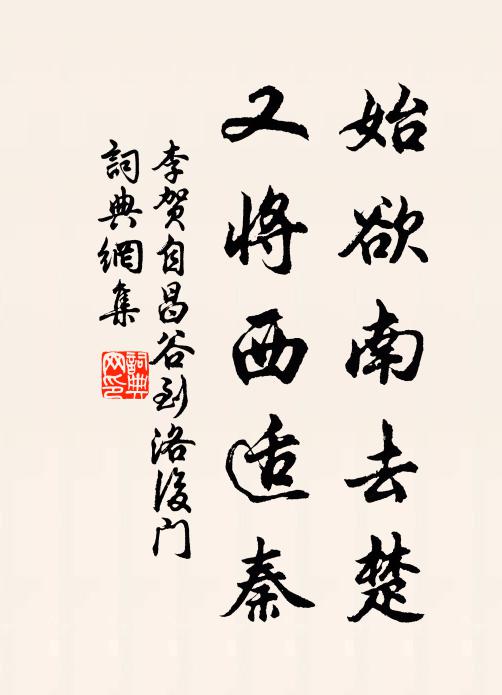 始欲南去楚
又將西适秦
李贺自昌谷到洛後门
詞典網集
詞典網印